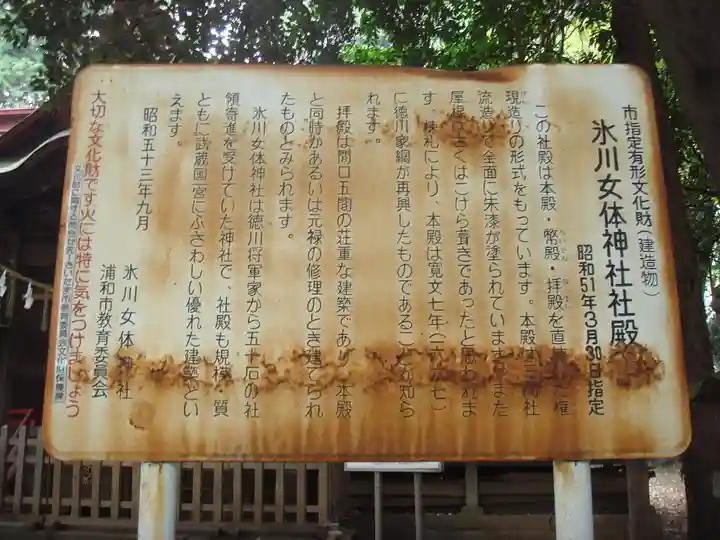 市指定有形文化財(建造物)
氷川女体神社社殿
昭和51年3月30日指定
この社殿は本殿・幣殿・拝殿を直 権
現造りの形式をもっています。本殿は三間社
流造りで全面に朱漆が塗られています。また
屋根は くはこけら葺きであったと思われま
す。棟札により、本殿は寛文七年(一六六七)
に徳川家綱が再興したものであることが知ら
れます。
拝殿は間口五間の荘重な建築であり、本殿
と同時かあるいは元禄の修理のとき建てられ
たものとみられます。
氷川女体神社は徳川将軍家から五十石の社
領寄進を受けていた神社で、社殿も規模・質
ともに武蔵国一宮にふさわしい優れた建築とい
えます。
昭和五十三年九月
氷川女体神社
浦和市教育委員会
大切な文化財です火には特に気をつけましょう